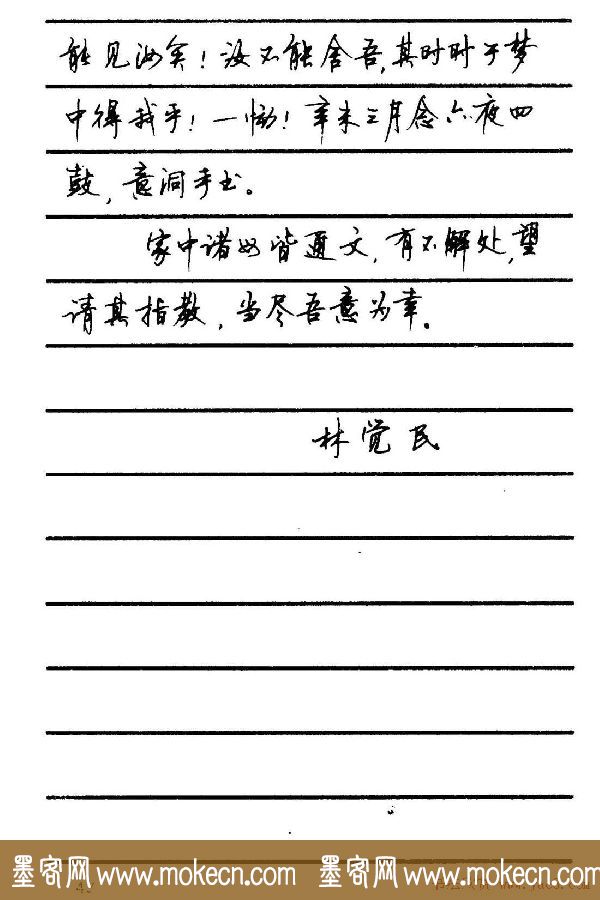 能见汝矣！汝不能舍吾，其时时于梦
中得我乎！一恸！辛未三月念六夜四
鼓，意洞手书。
家中诸母皆通文，有不解处，望
请其指教，当尽吾意为幸。
林觉民
墨客网 www.mokecn.com 墨客网 www.mokecn.com